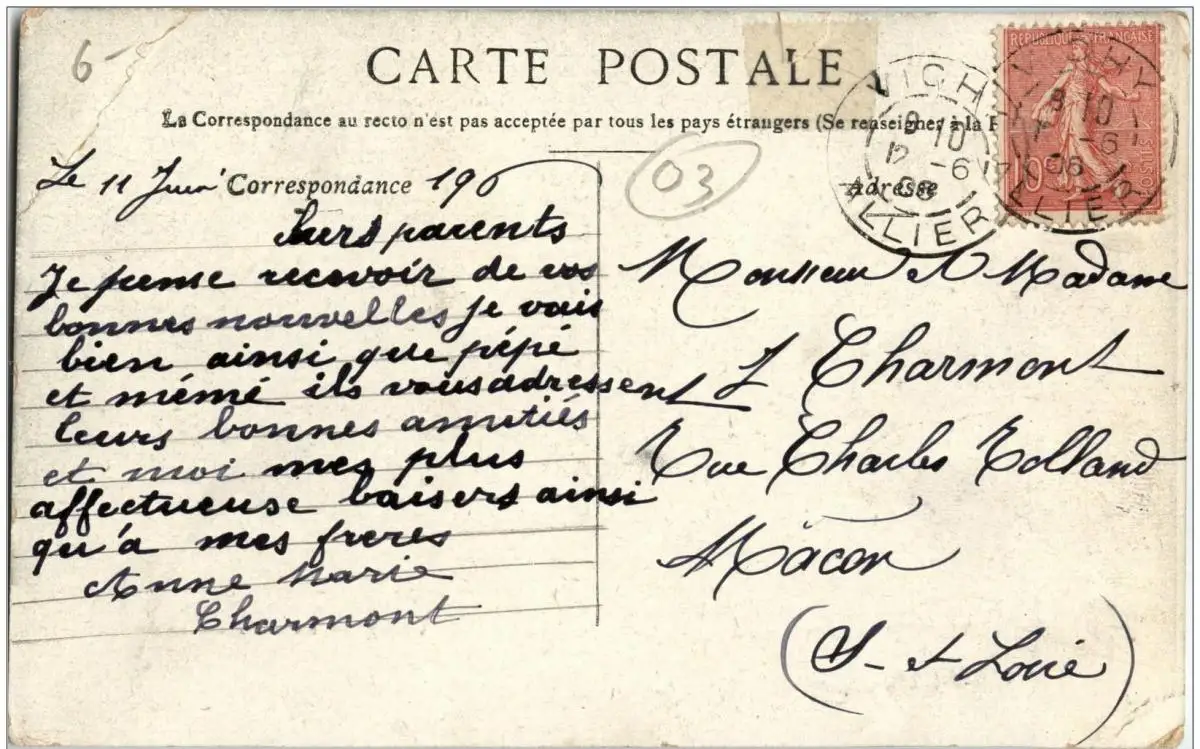 6-
CARTE POSTALE
La Correspondance au recto n'est pas acceptée par tous les pays étrangers (Se renseigner à la P
RÉPUBLIQUE FRANÇAISE
10
VICHY
8 10
12 -6
06
ALLIER
VICHY
8 10
12 -6
06
ALLIER
03
Le 11 Juin Correspondance 190
Adresse
chers parents
Je pense recevoir de vos
bonnes nouvelles je vais
bien ainsi que pépé
et mémé ils vous adressent
leurs bonnes amitiés
et moi mes plus
affectueuse baisers ainsi
qu'à mes freres
Anne Marie
Charmont
Monsieur et Madame
Charmont
Rue Charles Rolland
Mâcon
(S- et Loire)